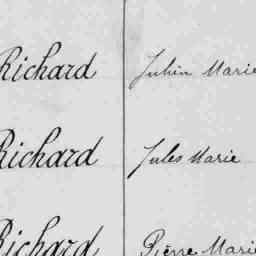 Richard Julien Marie
Richard Jules Marie
Richard Pierre Marie